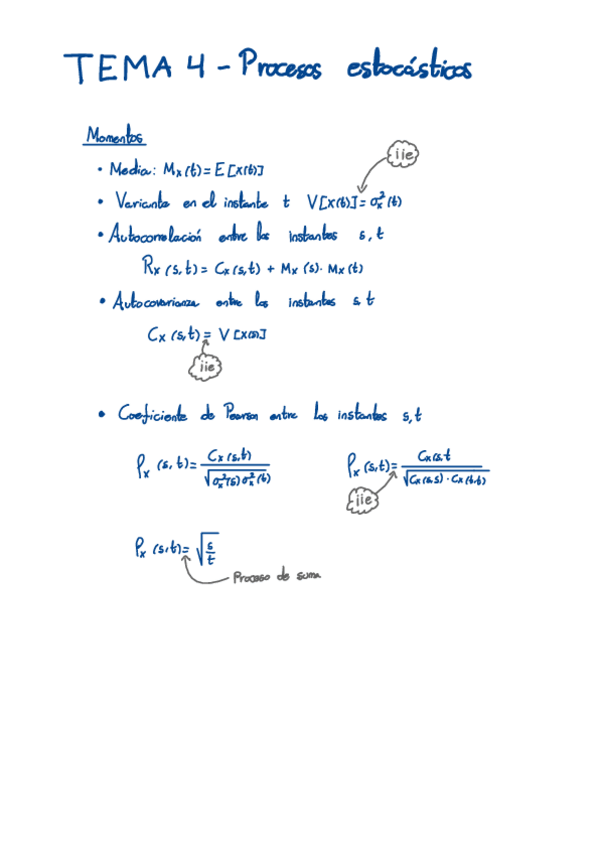 TEMA 4 - Procesos estocásticos
Momentos
• Media: Mx(t) = E[X(t)]
iie
• Varianta en el instante t V[X(t)] = σx²(t)
• Autocorrelación entre los instantes s, t
Rx (s,t) = Cx (s,t) + Mx (s) · Mx (t)
• Autocovarianza entre los instantes s, t
Cx (s,t) = V [X(s)]
iie
• Coeficiente de Pearson entre los instantes s,t
ρx (s, t) = Cx (s,t) / √σx²(s) σx²(t)
ρx (s,t) = Cx(s,t / √Cx (s,s) · Cx (t,t)
iie
ρx (s,t) = √s/t
Proceso de suma